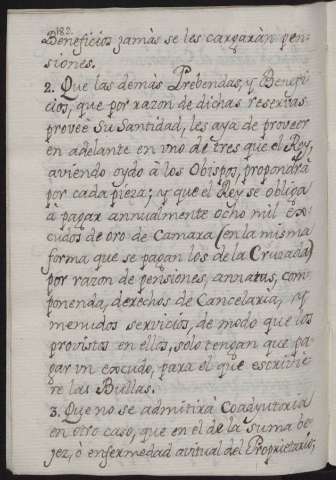 182.
Beneficios jamàs se les cargaràn pen-
siones.
2. Que las demàs Prebendas, y Benefi-
cios, que por razon de dichas reservas
proveè Su Santidad, les aya de proveer
en adelante en vno de tres que el Rey,
aviendo oydo à los Obispos, propondrà
por cada pieza; y que el Rey se obliga
à pagar annualmente ocho mil es-
cudos de oro de Camara (en la misma
forma que se pagan los de la Cruzada)
por razon de pensiones, annatas, com-
ponenda, derechos de Cancelaria, y
menudos servicios, de modo que los
provistos en ellos, solo tengan que pa-
gar vn escudo, para el que escrivie-
re las Bullas.
3. Que no se admitirà Coadyutoria
en otro caso, que en el de la suma ve-
jez, ò enfermedad avitual del Proprietario;